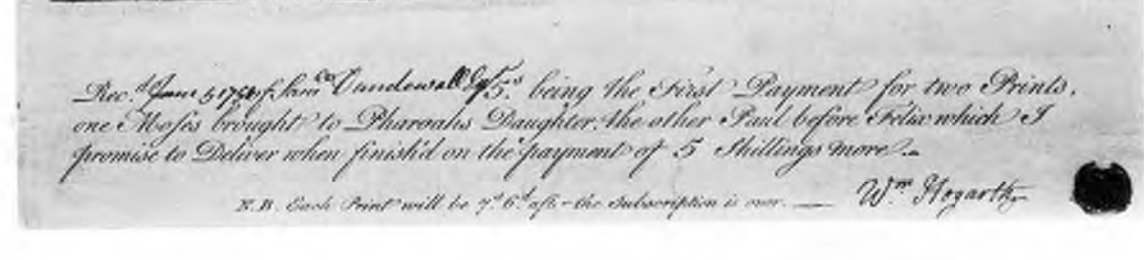 Rec.d June 5 1751 of Sam Vandewall Esq.r 5.s being the First Payment for two Prints,
one Moses brought to Pharoahs Daughter, the other Paul before Felix which I
promise to Deliver when finish'd on the payment of 5 Shillings more.
Wm. Hogarth
N.B. Each Print will be 7.s 6.d after the Subscription is over.